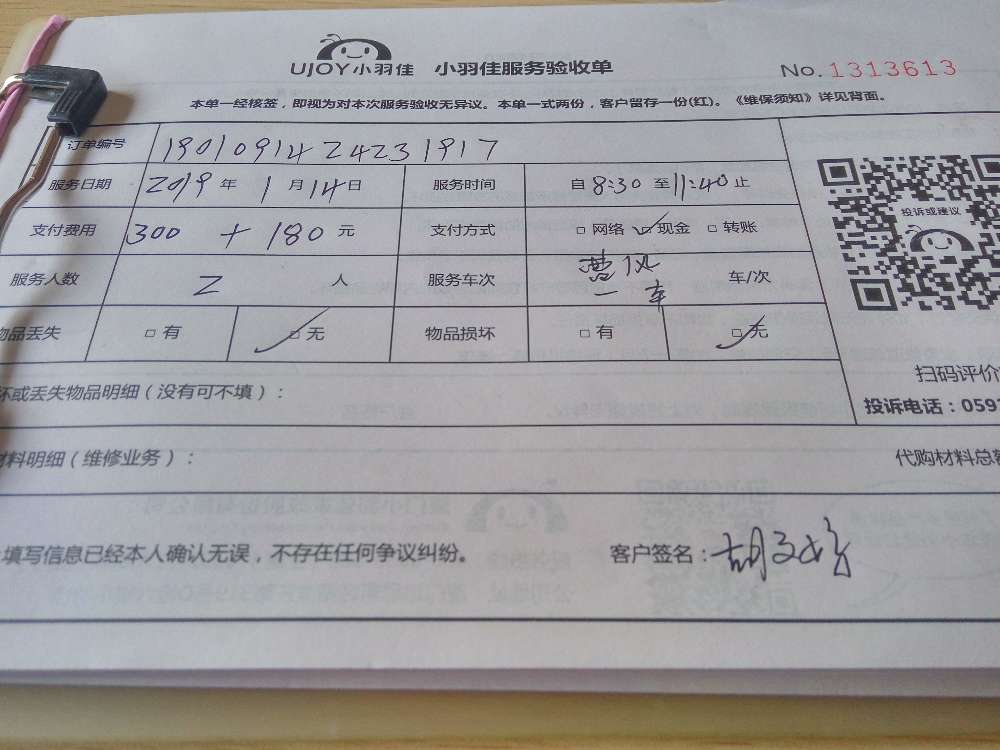 UJOY小羽佳 小羽佳服务验收单 No.1313613
本单一经核签，即视为对本次服务验收无异议。本单一式两份，客户留存一份(红)。《维保须知》详见背面。
订单编号 1901091424231917
服务日期 2019年1月14日 服务时间 自8:30至11:40止
支付费用 300 + 180 元 支付方式 □网络 ☑现金 □转账
服务人数 2 人 服务车次 一车 车/次
物品丢失 □有 ☑无 物品损坏 □有 ☑无
投诉或建议
坏或丢失物品明细（没有可不填）：
扫码评价
投诉电话：0591
材料明细（维修业务）：
代购材料总
填写信息已经本人确认无误，不存在任何争议纠纷。 客户签名：胡文婷